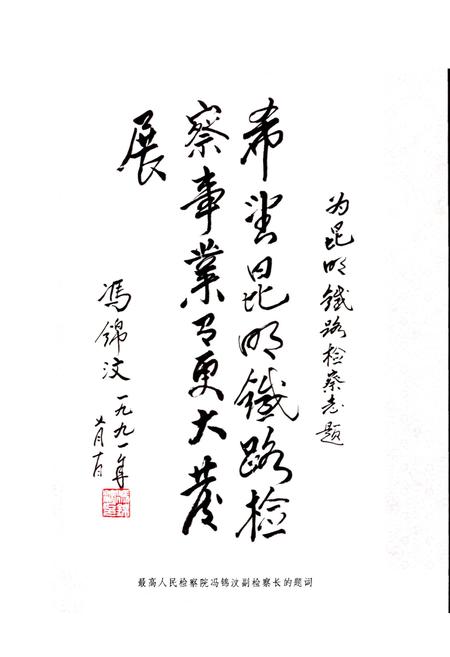 为昆明鐵路检察志题
希望昆明鐵路检
察事業有更大发
展
冯锦汶
一九九一年
十日
最高人民检察院冯锦汶副检察长的题词